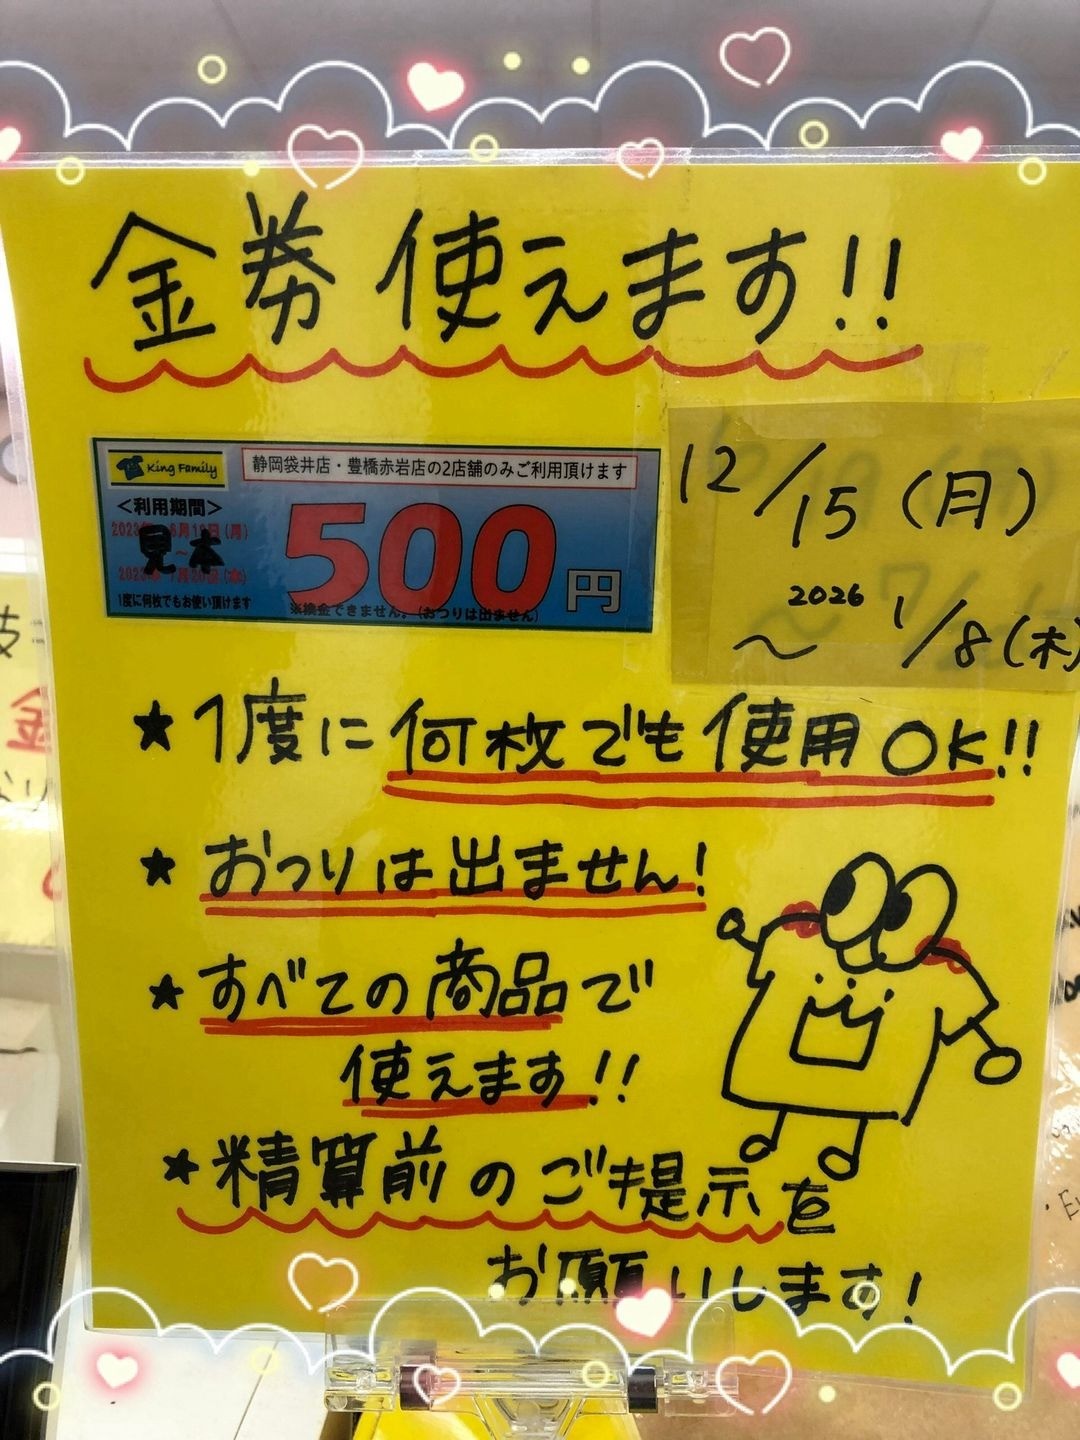 金券使えます!!
King Family
静岡袋井店・豊橋赤岩店の2店舗のみご利用頂けます
<利用期間>
見本
500円
1度に何枚でもお使い頂けます
※換金できません。(おつりは出ません)
12/15(月)
~2026 1/8(木)
★1度に何枚でも使用OK!!
★おつりは出ません!
★すべての商品で
使えます!!
★精算前のご提示を
お願いします!